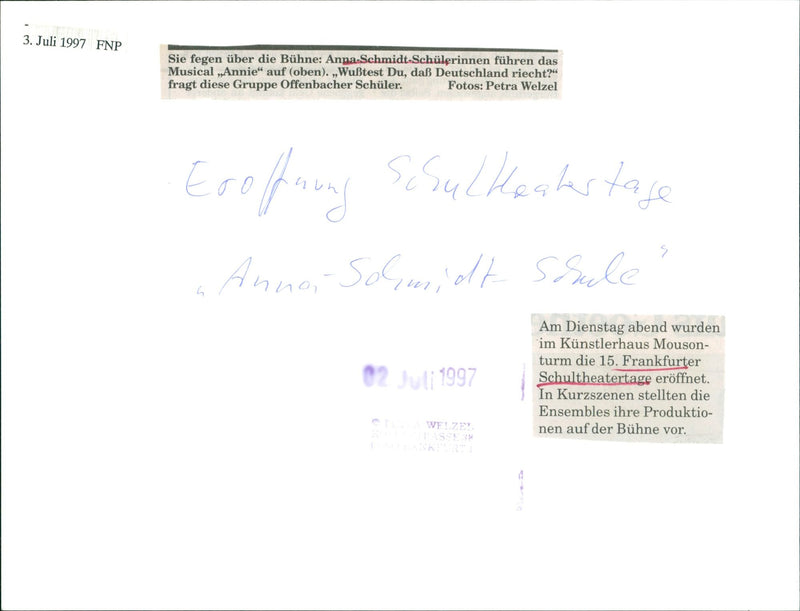 3. Juli 1997 FNP
Sie fegen über die Bühne: Anna-Schmidt-Schülerinnen führen das
Musical „Annie“ auf (oben). „Wußtest Du, daß Deutschland riecht?“
fragt diese Gruppe Offenbacher Schüler. Fotos: Petra Welzel
Eröffnung Schultheatertage
„Anna-Schmidt-Schule“
Am Dienstag abend wurden
im Künstlerhaus Mouson-
turm die 15. Frankfurter
Schultheatertage eröffnet.
In Kurzszenen stellten die
Ensembles ihre Produktio-
nen auf der Bühne vor.
02 Juli 1997
© WELZEL